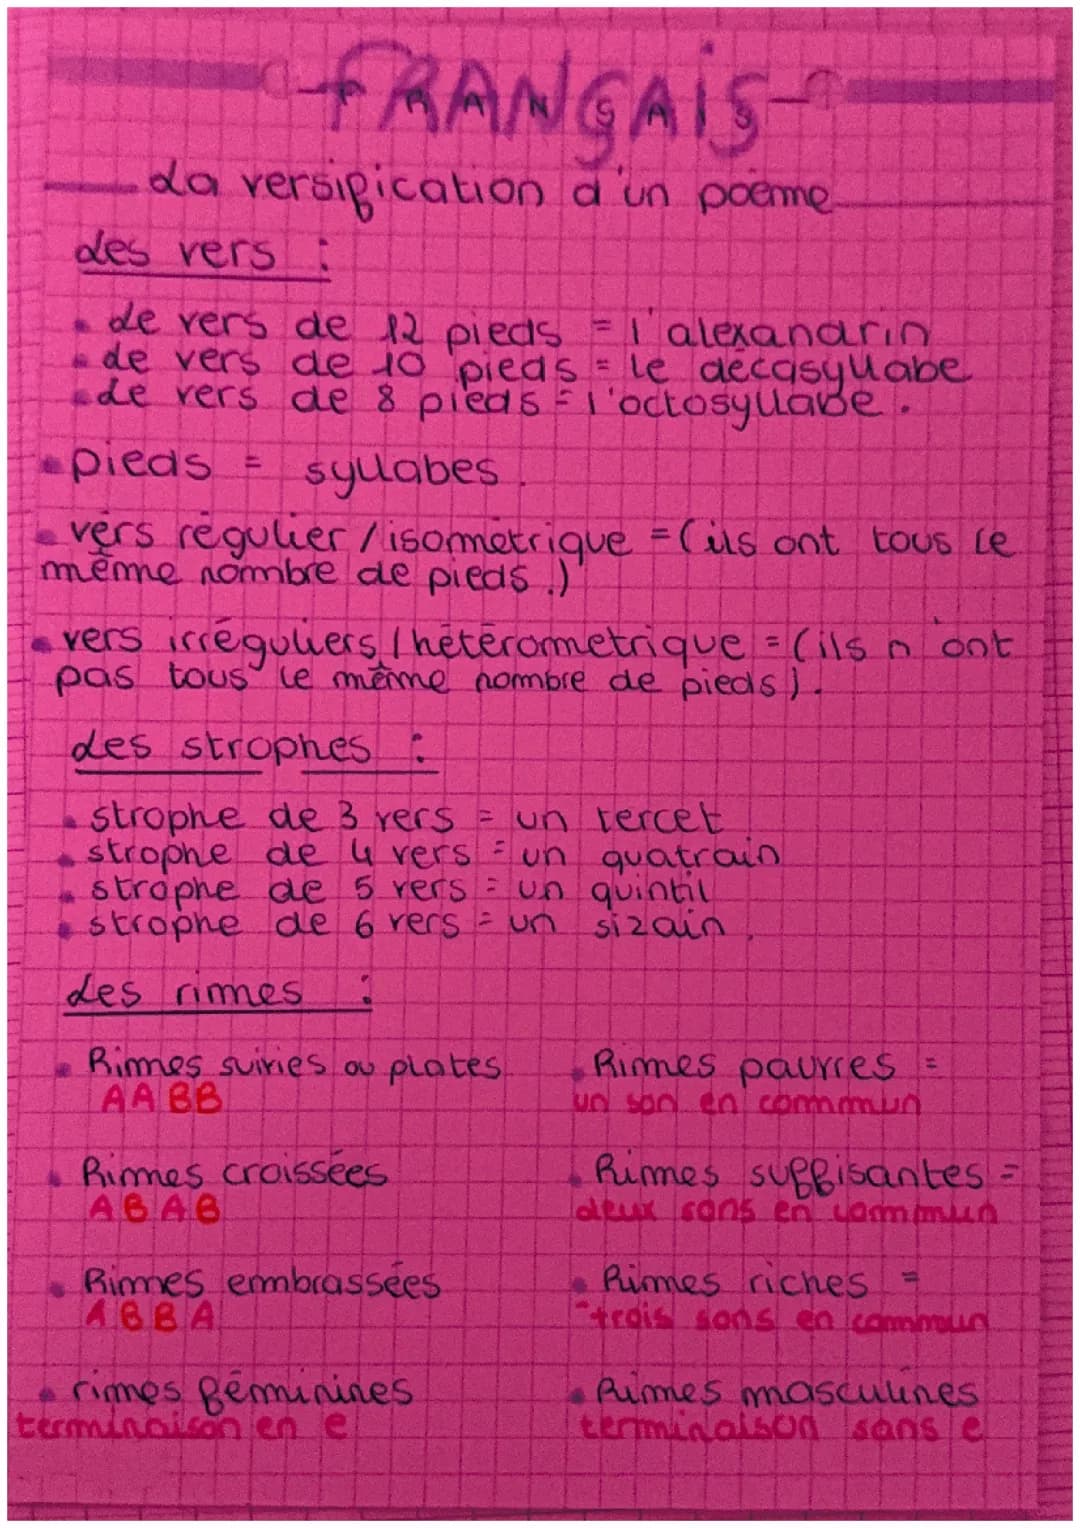 FRANÇAIS
La versification d'un poème
Les vers :
Le vers de 12 pieds = l'alexandrin
Le vers de 10 pieds = le décasyllabe
Le vers de 8 pieds = l'octosyllabe.
pieds = syllabes.
vers régulier / isométrique = (ils ont tous le
même nombre de pieds.)
vers irréguliers / hétérometrique = (ils n'ont
pas tous le même nombre de pieds).
Les strophes :
strophe de 3 vers = un tercet
strophe de 4 vers = un quatrain
strophe de 5 vers = un quintil
strophe de 6 vers = un sizain.
Les rimes :
Rimes suivies ou plates
AABB
Rimes pauvres =
un son en commun
Rimes croissées
ABAB
Rimes suffisantes =
deux sons en commun
Rimes embrassées
ABBA
Rimes riches =
trois sons en commun
rimes féminines
terminaison en e
Rimes masculines
terminaison sans e